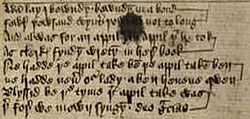 Adam lay i bowndyn bowndyn in a bond
fowre þowsand wynter þowt he not to long
And al was for an appil an appil þt he tok
As clerkis fyndyn wretyn in here book
Ne hadde þe appil take ben þe appil take ben
ne hadde neuer our lady a ben heuene qwen
Blyssid be þe tyme þt appil take was
þer fore we mown syngyn deo gracias